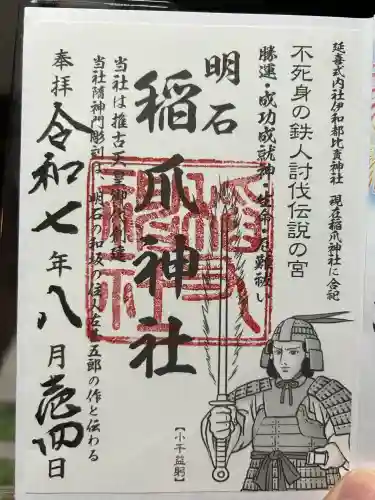 延喜式内社伊和都比賣神社　現在稲爪神社に合祀
不死身の鉄人討伐伝説の宮
勝運・成功成就神・生命・厄難祓し
明石
稲爪神社
当社は推古天皇御代創建
当社随神門彫刻は、明石の和坂の住人左甚五郎の作と伝わる
奉拝
令和七年八月壱四日
【小千益躬】